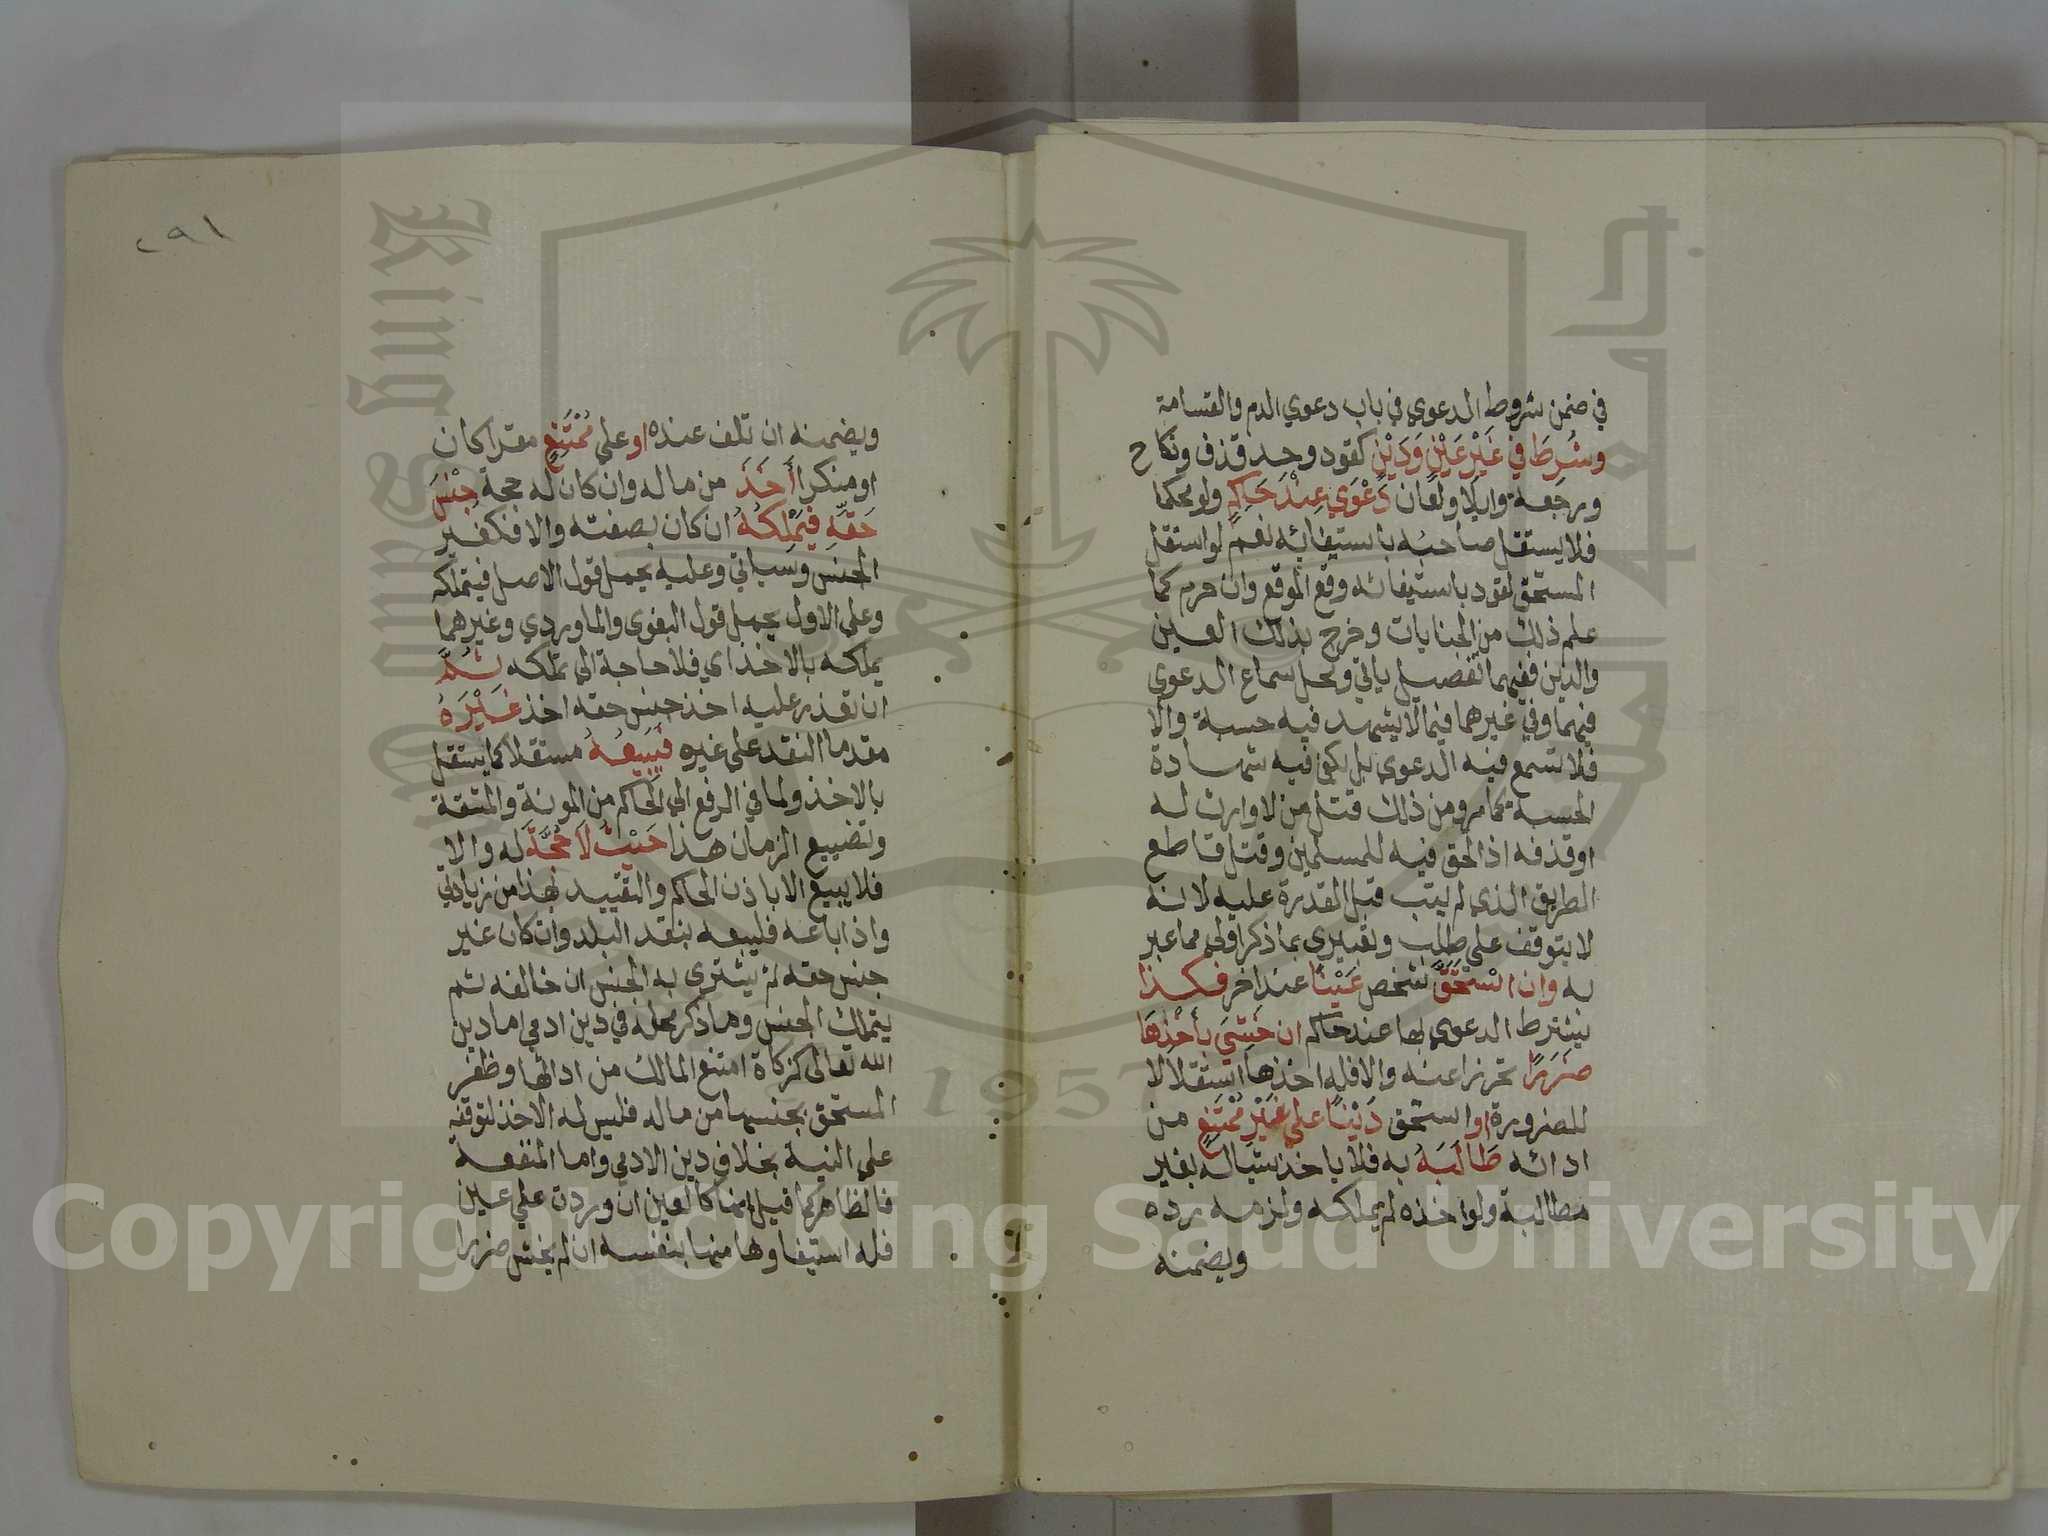 في ضمن شروط الدعوي في باب دعوي الدم والقسامة
وَشُرِطَ في غَيْرِ عَيْنٍ وَدَيْنٍ كقود وحد قذف ونكاح
ورجعة وايلا ولعان دَعْوَي عِنْدَ حَاكِمٍ ولو محكما
فلا يستقل صاحبه باستيفائه نعم لو استقل
المستحق لقود باستيفائه وقع الموقع وان حرم كما
علم ذلك من الجنايات وخرج بذلك العين
والدين ففيهما تفصيل ياتي ومحل سماع الدعوي
فيهما وفي غيرهما فيما لا يشهد فيه حسبة والا
فلا تسمع فيه الدعوي بل يكفي فيه شهادة
الحسبة كما مر ومن ذلك قتل من لا وارث له
او قذفه اذ الحق فيه للمسلمين وقتل قاطع
الطريق الذي لم يتب قبل القدرة عليه لانه
لا يتوقف علي طلب وتعبيري بما ذكر اولي مما عبر
به وان اسْتَحَقَّ شخص عَيْنًا عند اخر فكذا
يشترط الدعوي بها عند حاكم ان خَشِيَ بأَخْذِهَا
ضَرَرًا تحرزا عنه والا فله اخذها استقلالا
للضرورة او استحق دَيْنًا علي غَيْرِ مُمْتَنِعٍ من
ادائه طَالَبَهُ به فلا ياخذ شيا له بغير
مطالبة ولو اخذه لم يملكه ولزمه رده
ويضمنه
٢٩١
ويضمنه ان تلف عنده او علي مُمْتَنِعٍ مقرا كان
او منكرا أَخَذَ من ماله وان كان له حجة جِنْسَ
حَقِّهِ فَيَمْلِكُهُ ان كان بصفته والا فكغير
الجنس وسياتي وعليه يحمل قول الاصل فيتملكه
وعلي الاول يحمل قول البغوي والماوردي وغيرهما
يملكه بالاخذ اي فلا حاجة الي تملكه ثُمَّ
ان تعذر عليه اخذ جنس حقه اخذ غَيْرَهُ
مقدما النقد علي غيره فَيَبِيعُهُ مستقلا كما يستقل
بالاخذ ولما في الرفع الي الحاكم من المونة والمشقة
وتضييع الزمان هذا حَيْثُ لاَ حُجَّةَ له والا
فلا يبيع الا باذن الحاكم والتقييد بهذا من زيادتي
واذا باعه فليبعه بنقد البلد وان كان غير
جنس حقه ثم يشتري به الجنس ان خالفه ثم
يتملك الجنس وما ذكر محله في دين ادمي اما دين
الله تعالى كزكاة امتنع المالك من ادائها وظفر
المستحق بجنسها من ماله فليس له الاخذ لتوقفه
علي النية بخلاف دين الادمي واما المنفعة
فالظاهر كما قيل انها كالعين ان وردت علي عين
فله استيفاوها منها بنفسه ان لم يخش ضررا
King Saud University
جامعة الملك سعود
1957
Copyright © King Saud University